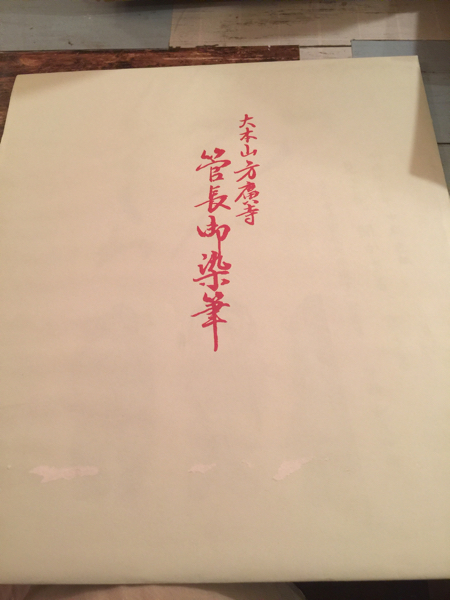 大本山方廣寺
管長御染筆